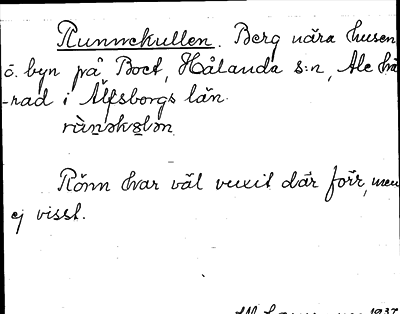 Runnekullen. Berg nära husen
ö. byn på Boet, Hålanda s:n, Ale hä
-rad i Älfsborgs län.
Rönn har väl vuxit där förr, men
ej visst.
1937